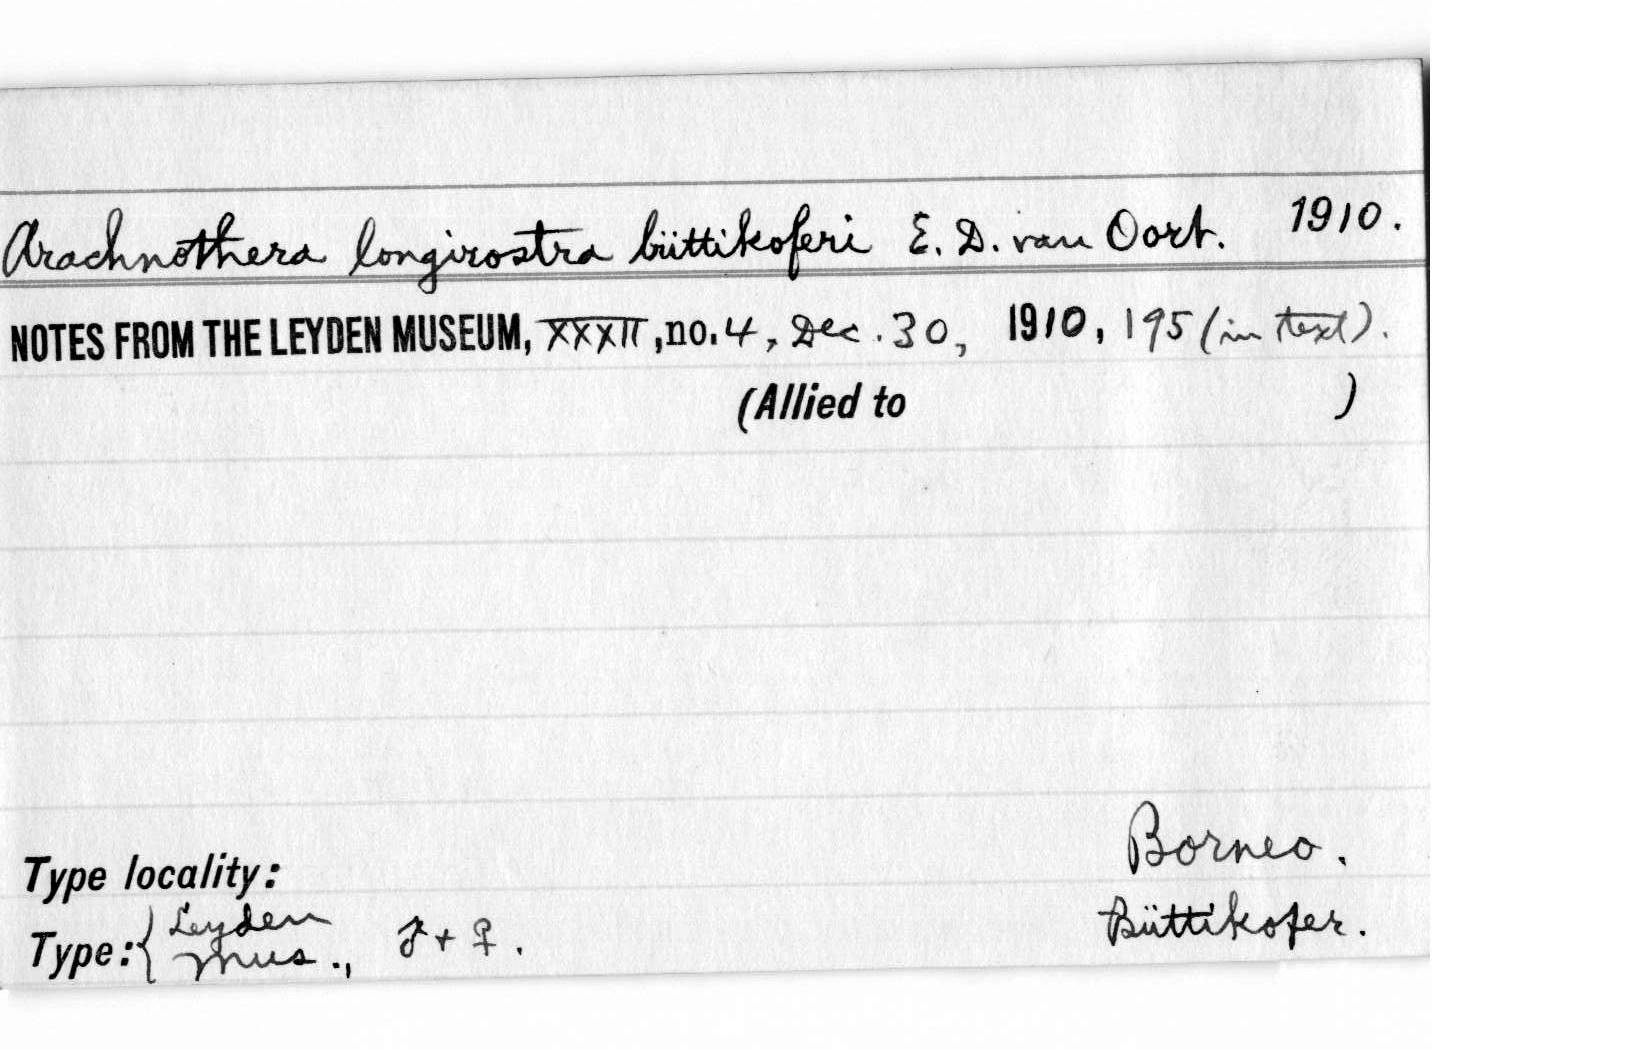 Arachnothera longirostra büttikoferi E. D. van Oort. 1910.
NOTES FROM THE LEYDEN MUSEUM, XXXII, no. 4, Dec. 30, 1910, 195 (in text).
(Allied to )
Borneo.
Type locality:
Type: { Leyden Mus., ♂ + ♀. Büttikofer.